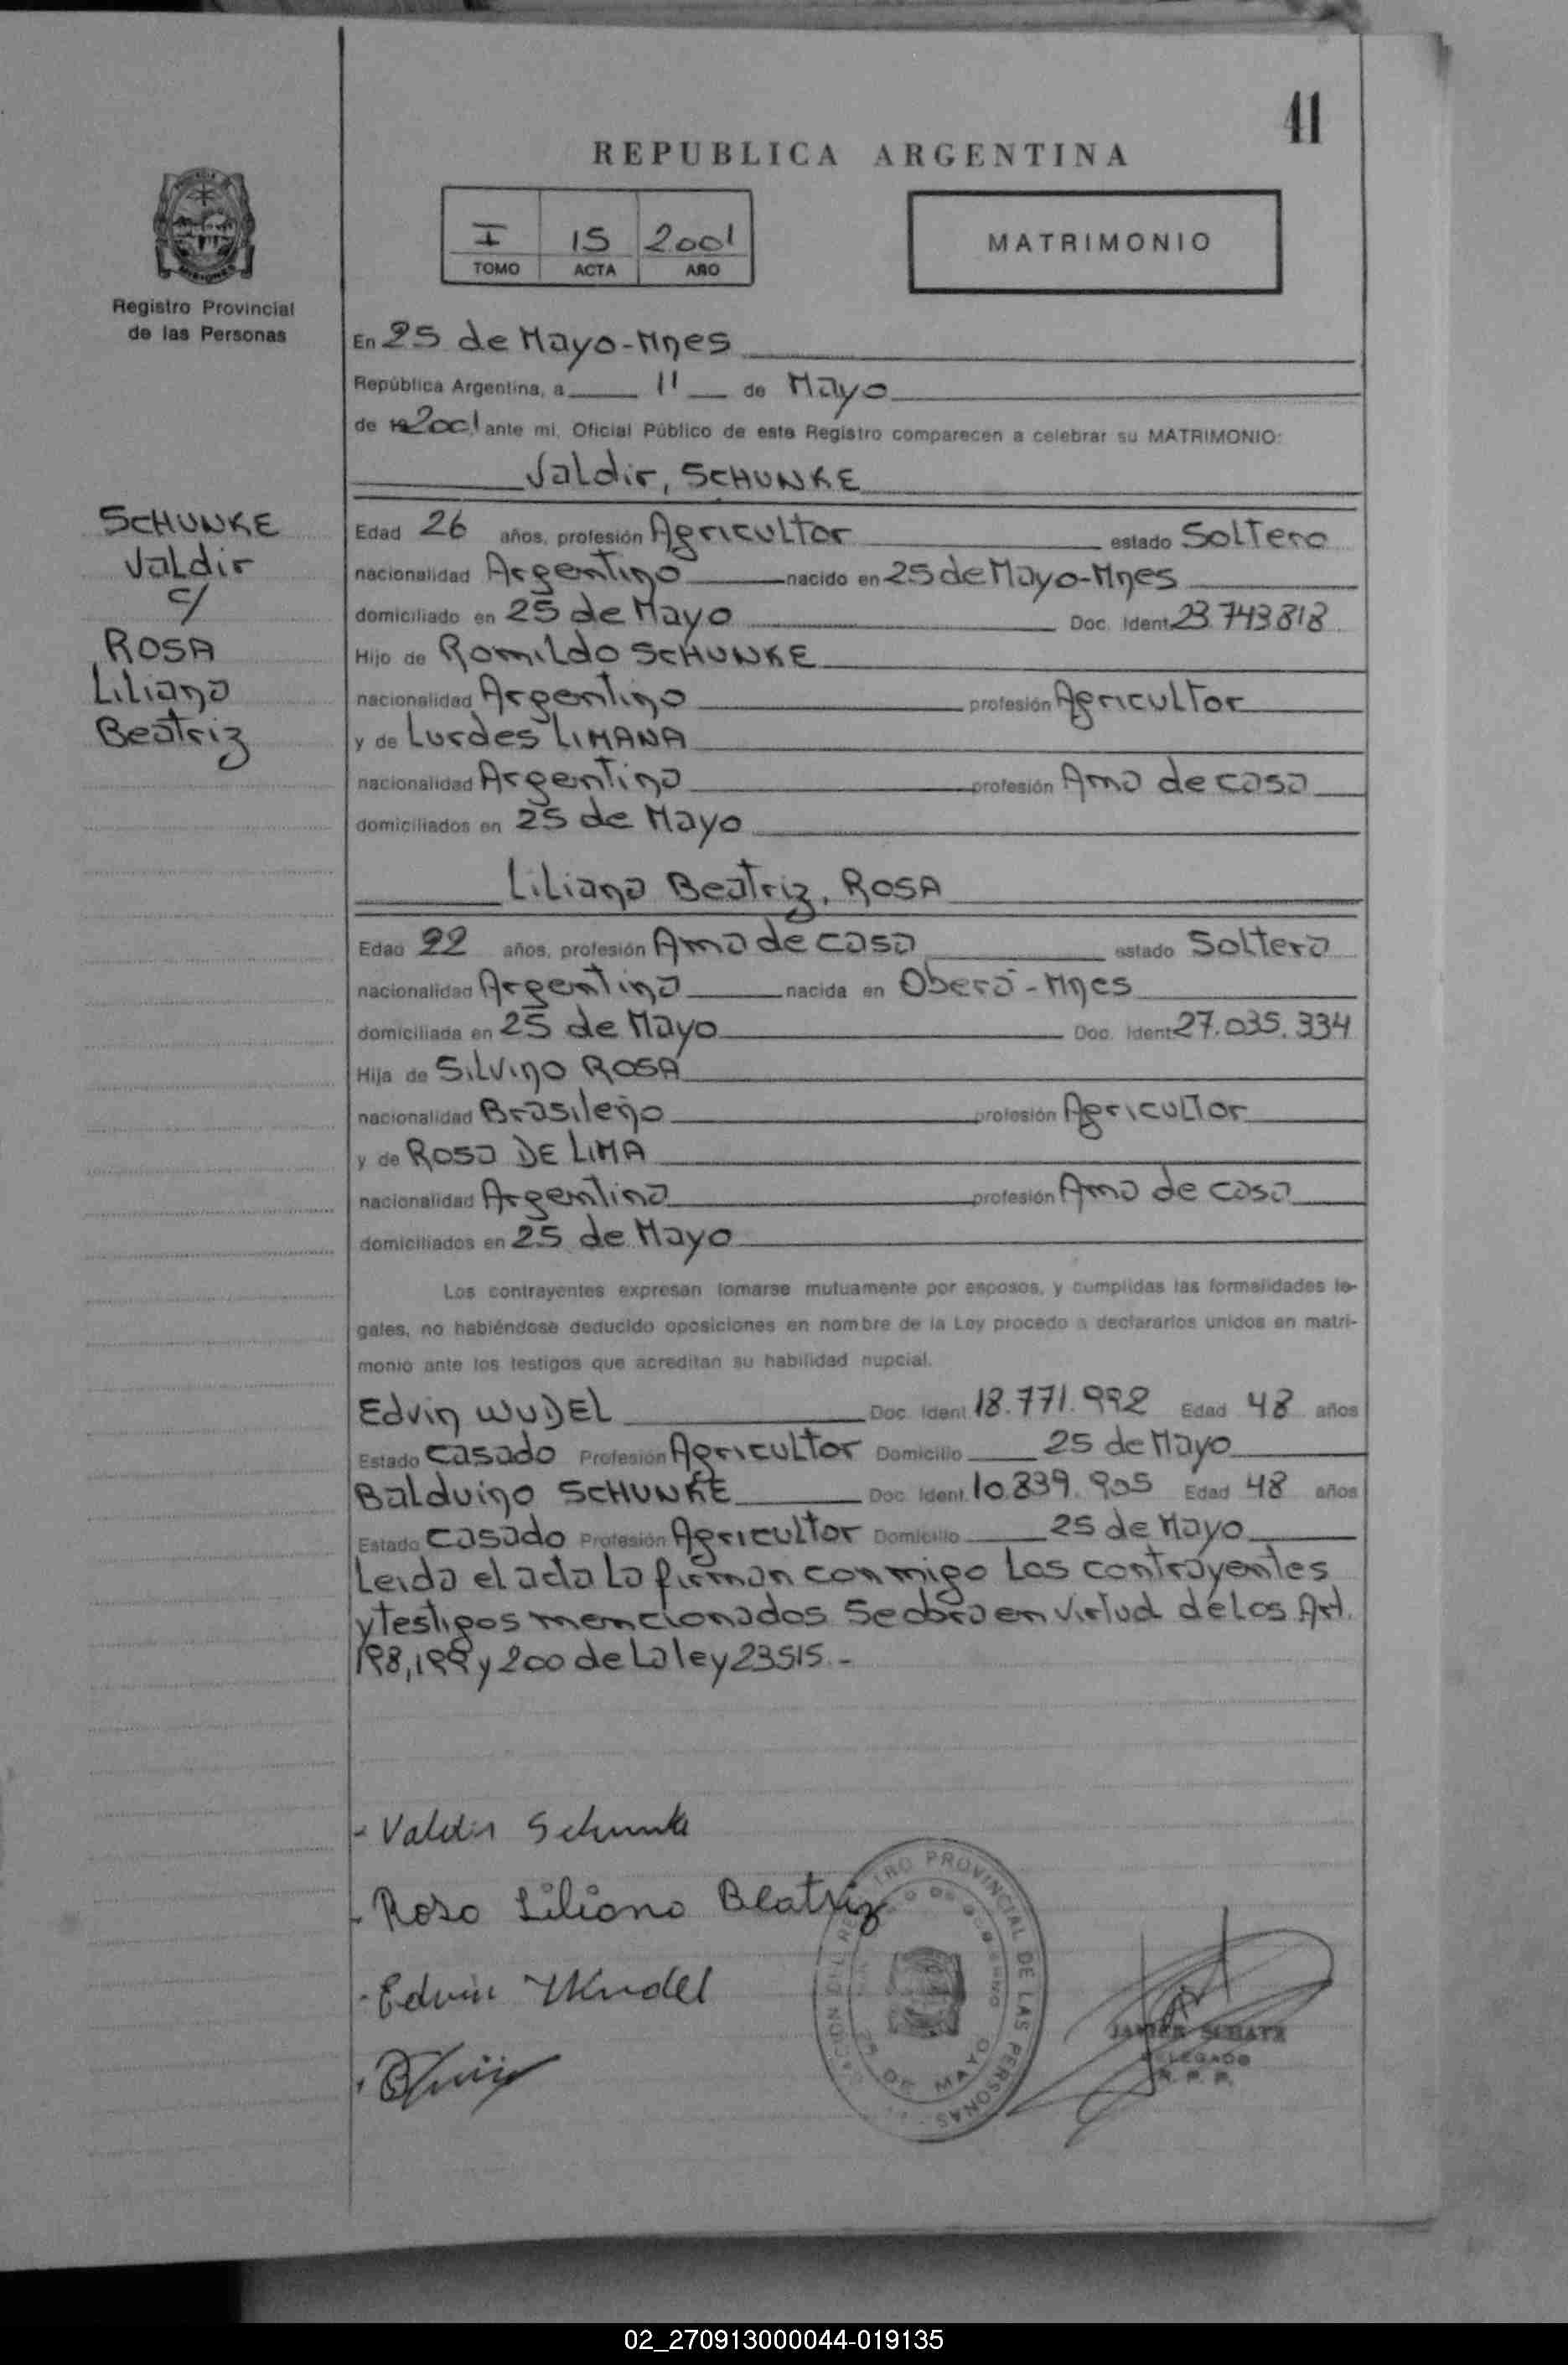 41
REPUBLICA ARGENTINA
I 15 2001
TOMO ACTA AÑO
MATRIMONIO
Registro Provincial
de las Personas
SCHUNKE
Valdir
c/
ROSA
Liliana
Beatriz
En 25 de Mayo-Mnes
República Argentina, a 11 de Mayo
de 19 2001 ante mi, Oficial Público de este Registro comparecen a celebrar su MATRIMONIO:
Valdir, SCHUNKE
Edad 26 años, profesión Agricultor estado Soltero
nacionalidad Argentino nacido en 25 de Mayo-Mnes
domiciliado en 25 de Mayo Doc. Ident. 23.743.818
Hijo de Romildo SCHUNKE
nacionalidad Argentino profesión Agricultor
y de Lurdes LIMANA
nacionalidad Argentina profesión Ama de casa
domiciliados en 25 de Mayo
Liliana Beatriz, ROSA
Edad 22 años, profesión Ama de casa estado Soltera
nacionalidad Argentina nacida en Oberá-Mnes
domiciliada en 25 de Mayo Doc. Ident. 27.035.334
Hija de Silvino ROSA
nacionalidad Brasileño profesión Agricultor
y de Rosa DE LIMA
nacionalidad Argentina profesión Ama de casa
domiciliados en 25 de Mayo
Los contrayentes expresan tomarse mutuamente por esposos, y cumplidas las formalidades le-
gales, no habiéndose deducido oposiciones en nombre de la Ley procedo a declararlos unidos en matri-
monio ante los testigos que acreditan su habilidad nupcial.
Edvin WUDEL Doc. Ident. 18.771.992 Edad 48 años
Estado Casado Profesión Agricultor Domicilio 25 de Mayo
Balduino SCHUNKE Doc. Ident. 10.839.905 Edad 48 años
Estado Casado Profesión Agricultor Domicilio 25 de Mayo
Leida el acta la firman conmigo los contrayentes
y testigos mencionados. Se obra en virtud de los Art.
198, 199 y 200 de la ley 23515.-
- Valdir Schunke
- Rosa Liliana Beatriz
- Edvin Wudel
PROVINCIAL DE LAS PERSONAS
25 DE MAYO
JAVIER SCHATZ
DELEGADO
R. P. P.
02_270913000044-019135